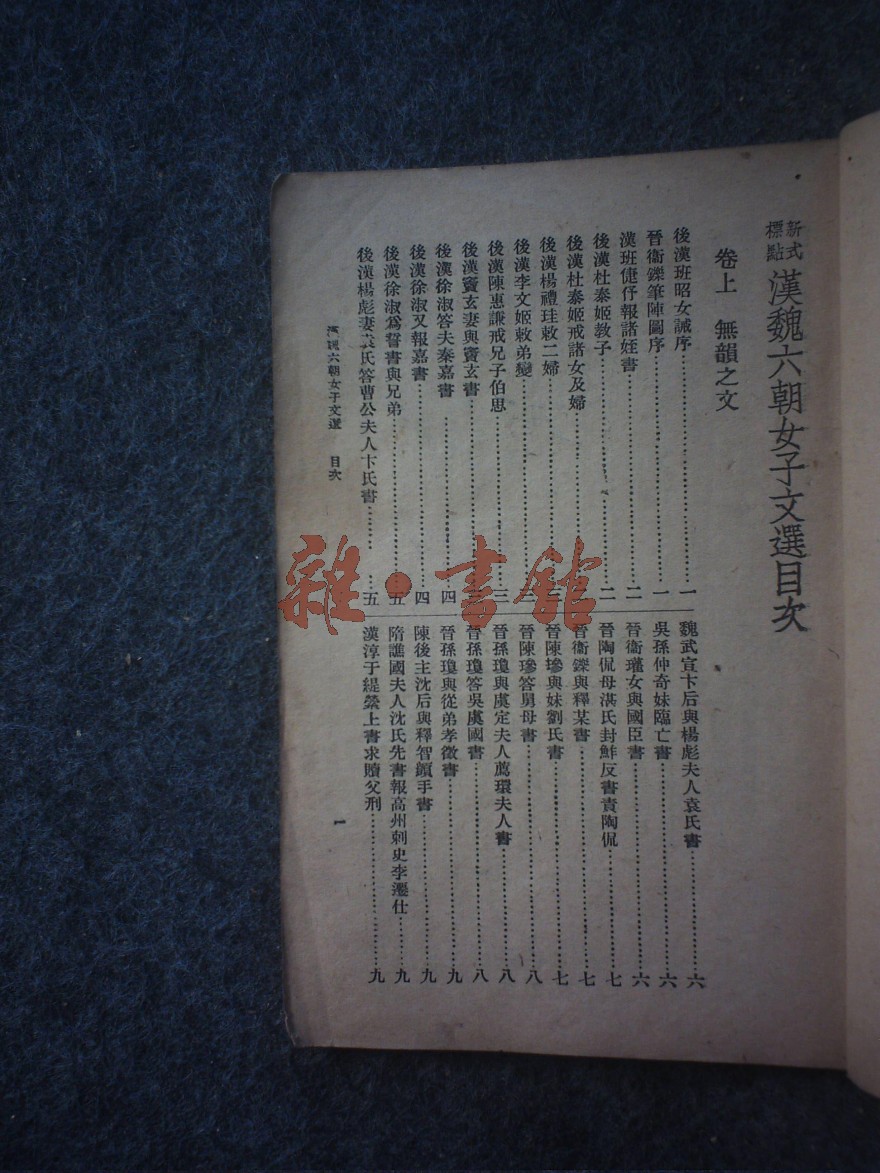 新式標點 漢魏六朝女子文選目次
卷上 無韻之文
後漢班昭女誡序 一
晉衞鑠筆陣圖序 一
漢班倢伃報諸姪書 二
後漢杜泰姬教子 二
後漢杜泰姬戒諸女及婦
後漢楊禮珪敕二婦
後漢李文姬敕弟變
後漢陳惠謙戒兄子伯思 三
後漢竇玄妻與竇玄書
後漢徐淑答夫秦嘉書 四
後漢徐淑又報嘉書 四
後漢徐淑爲誓書與兄弟 五
後漢楊彪妻袁氏答曹公夫人卞氏書 五
魏武宣卞后與楊彪夫人袁氏書 六
吳孫仲奇妹臨亡書 六
晉衞瓘女與國臣書 六
晉陶侃母湛氏封鮓反書責陶侃 七
晉衞鑠與釋某書 七
晉陳㻸與妹劉氏書 七
晉陳㻸答舅母書 八
晉孫瓊與虞定夫人薦環夫人書 八
晉孫瓊答吳虞國書 八
晉孫瓊與從弟孝徵書 九
陳後主沈后與釋智顗手書 九
隋譙國夫人沈氏先書報高州刺史李遷仕 九
漢淳于緹縈上書求贖父刑 九
漢魏六朝女子文選 目次
一
雜·書館